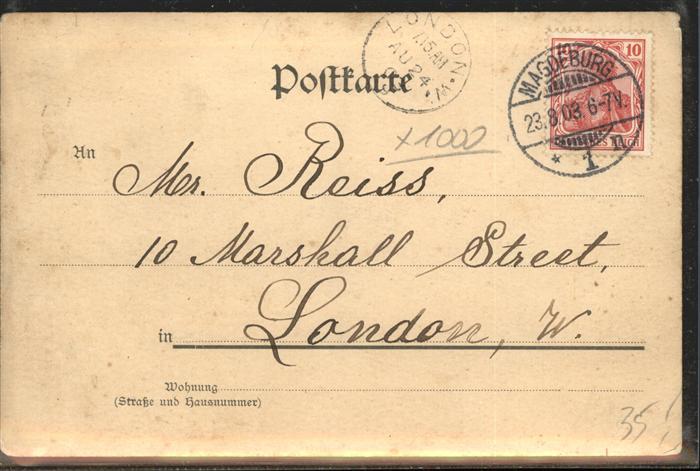 LONDON. W.
7.15 AM
AU 24
03
10
MAGDEBURG
23.8.03. 6-7V.
* 1 n
REICH
Postkarte
x1000
An
Mr. Reiss,
10 Marshall Street,
in London, W.
Wohnung
(Straße und Hausnummer)